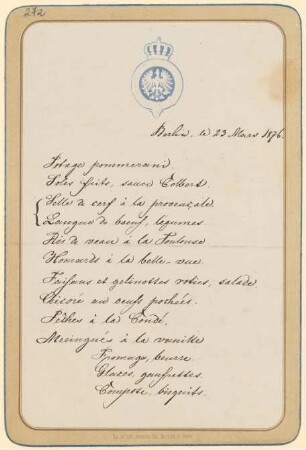 242
Berlin, le 23 Mars 1876.
Potage pommeranie
Soles frits, sauce Colbert.
Selle de cerf à la provençale
Langue de boeuf, légumes.
Ris de veau à la Toulouse
Homards à la belle-vue.
Faisans et gelinottes roties, salade.
Chicoré au oeufs pochées.
Pêches à la Condé.
Meringues à la vanille
Fromage, beurre.
Glaces, gaufrettes.
Compote, bisquits.